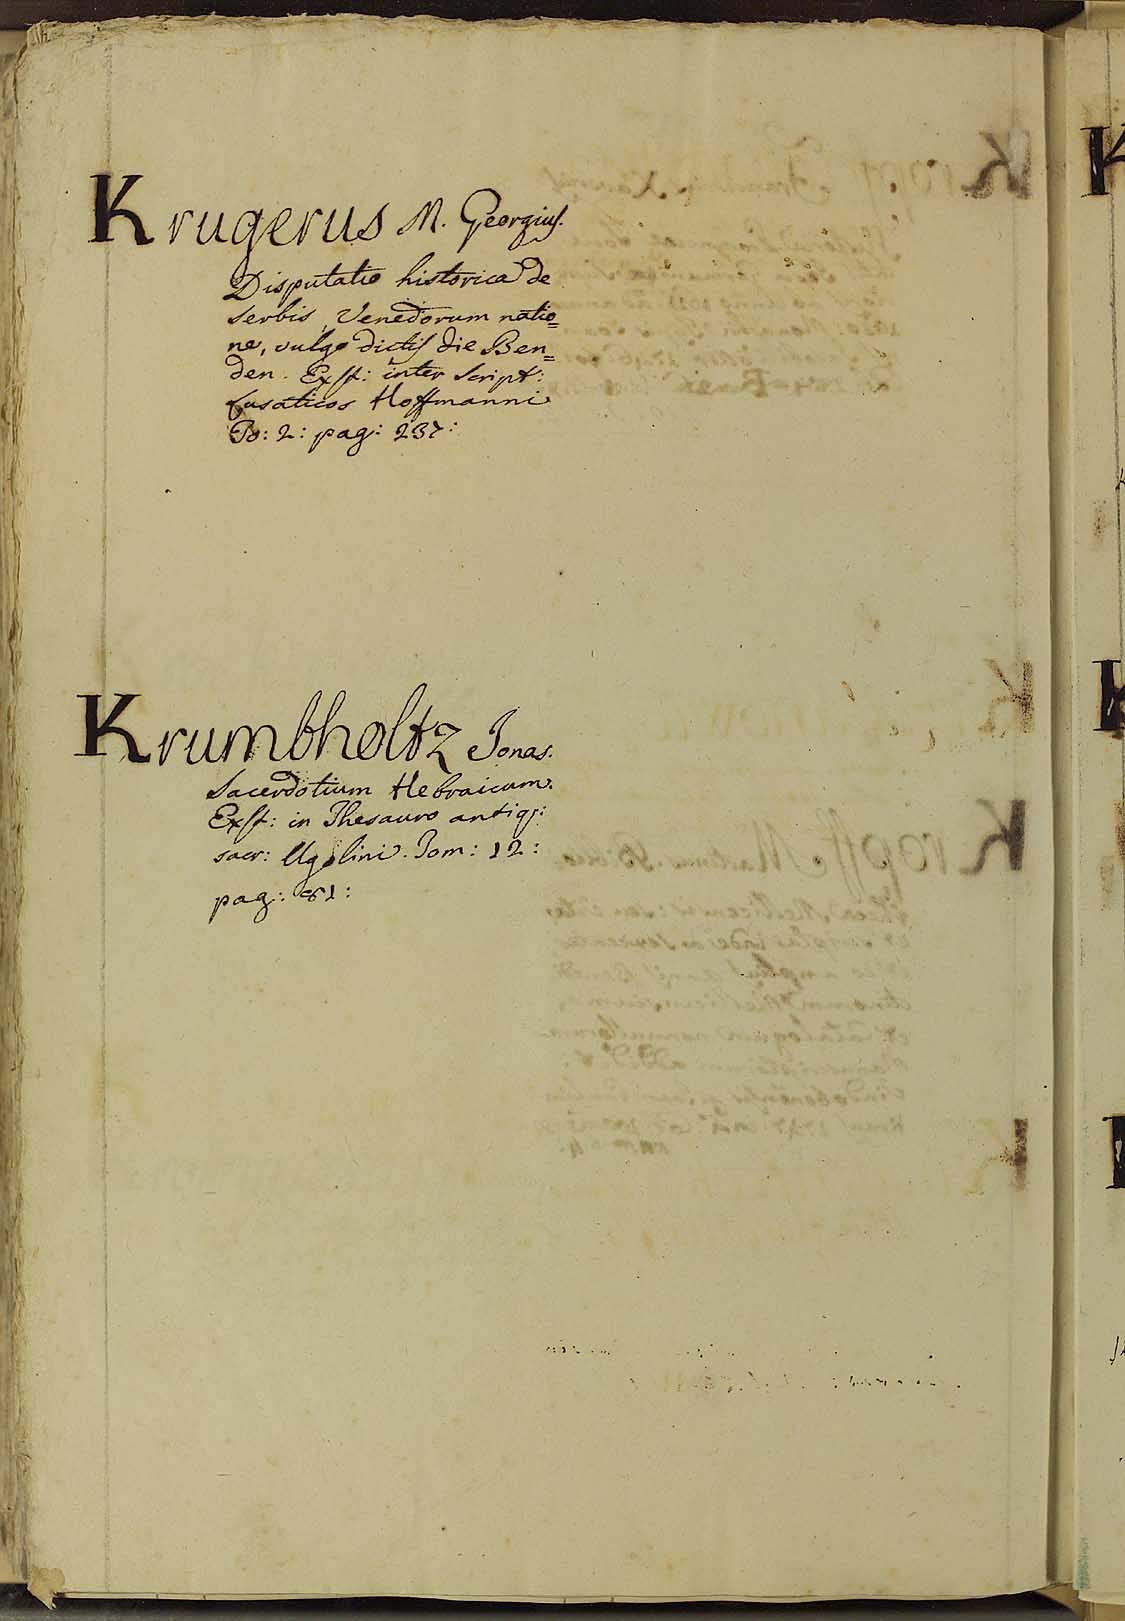 Krugerus M. Georgius.
Disputatio historica de
Serbis, Venedorum natio=
ne, vulgo dictis die Ben=
den. Exst: inter Script:
Lusaticos Hoffmanni
To: 2: pag: 237:
Krumbholtz Jonas.
Sacerdotium Hebraicum.
Exst: in Thesauro antiq:
sacr: Ugolini. Tom: 12:
pag: 81: